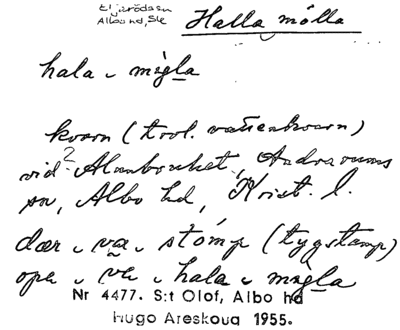 Ej prödasn
Albo hd, Sk
Halla mölla
hala ˬ mı̀gla
kvarn (trol. vattenkvarn)
vid? Alunbruket, Andrarums
sn, Albo hd, Krist. l.
dær ˬ va ˬ stómp (tygstamp)
ope ˬ ve ˬ hala ˬ mı̀gla
Nr 4477. S:t Olof, Albo hd
Hugo Areskoug 1955.